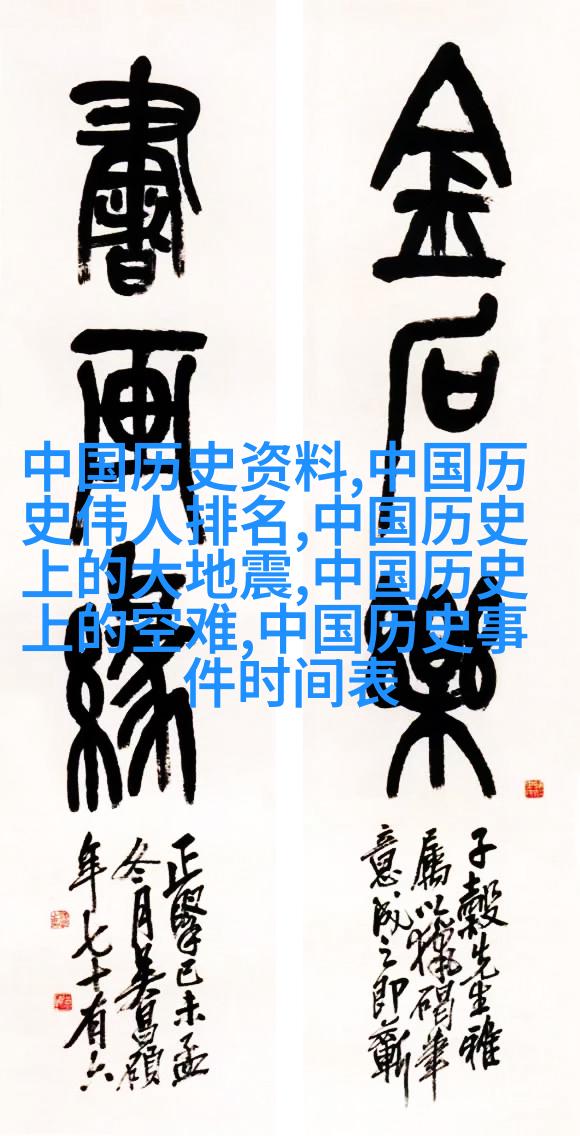 金石樂
子穀先生雅
屬以獵碣筆
意成之即蘄
書畫緣
正己未孟
冬月吳昌碩
年七十有六
中国历史资料,中国历
史伟人排名,中国历史
上的大地震,中国历史
上的空难,中国历史事
件时间表